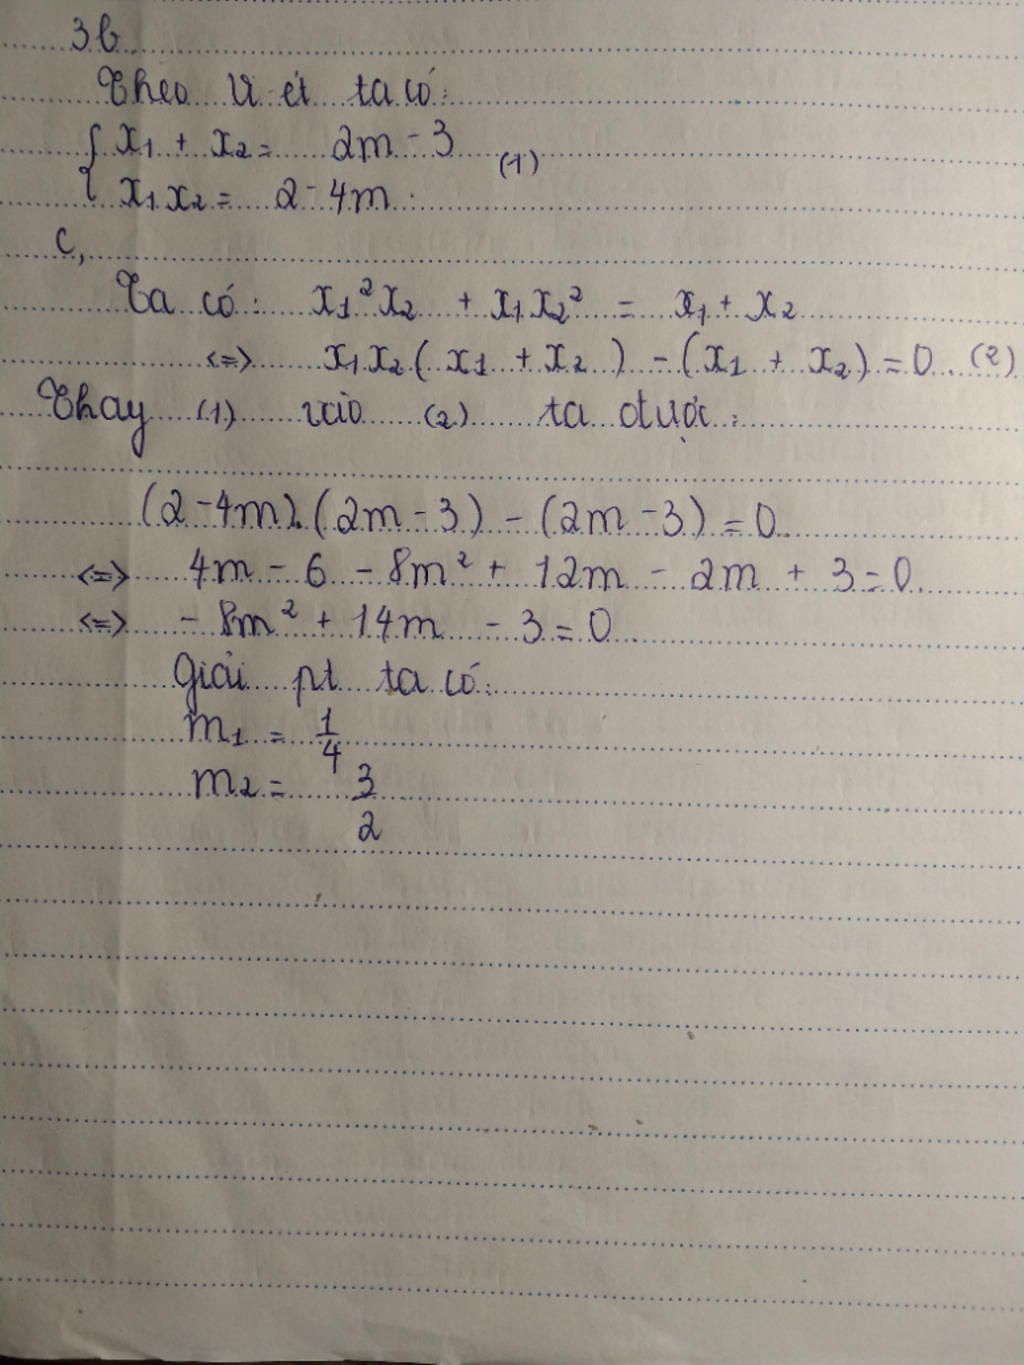 3b
Theo Vi-ét ta có:
{ x₁ + x₂ = 2m - 3
{ x₁x₂ = 2 - 4m. (1)
c,
Ta có: x₁²x₂ + x₁x₂² = x₁ + x₂
<=> x₁x₂(x₁ + x₂) - (x₁ + x₂) = 0. (2)
Thay (1) vào (2) ta được:
(2 - 4m).(2m - 3) - (2m - 3) = 0.
<=> 4m - 6 - 8m² + 12m - 2m + 3 = 0.
<=> - 8m² + 14m - 3 = 0
Giải pt ta có:
m₁ = 1/4
m₂ = 3/2